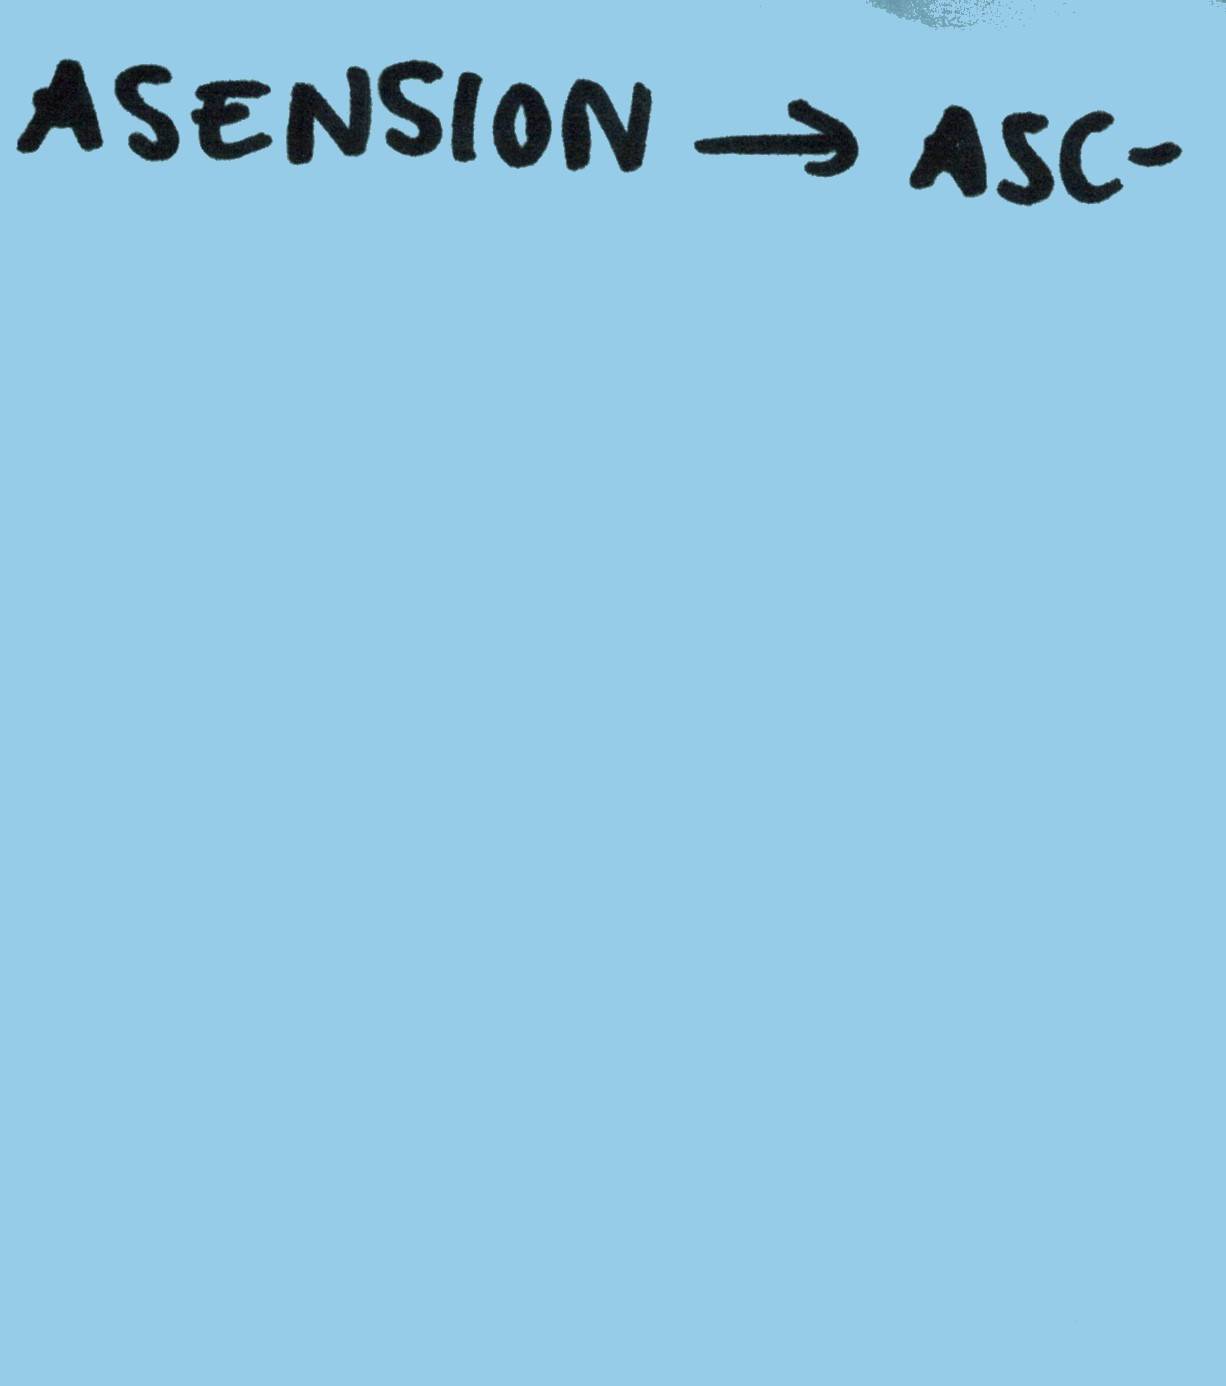 ASENSION → ASC-